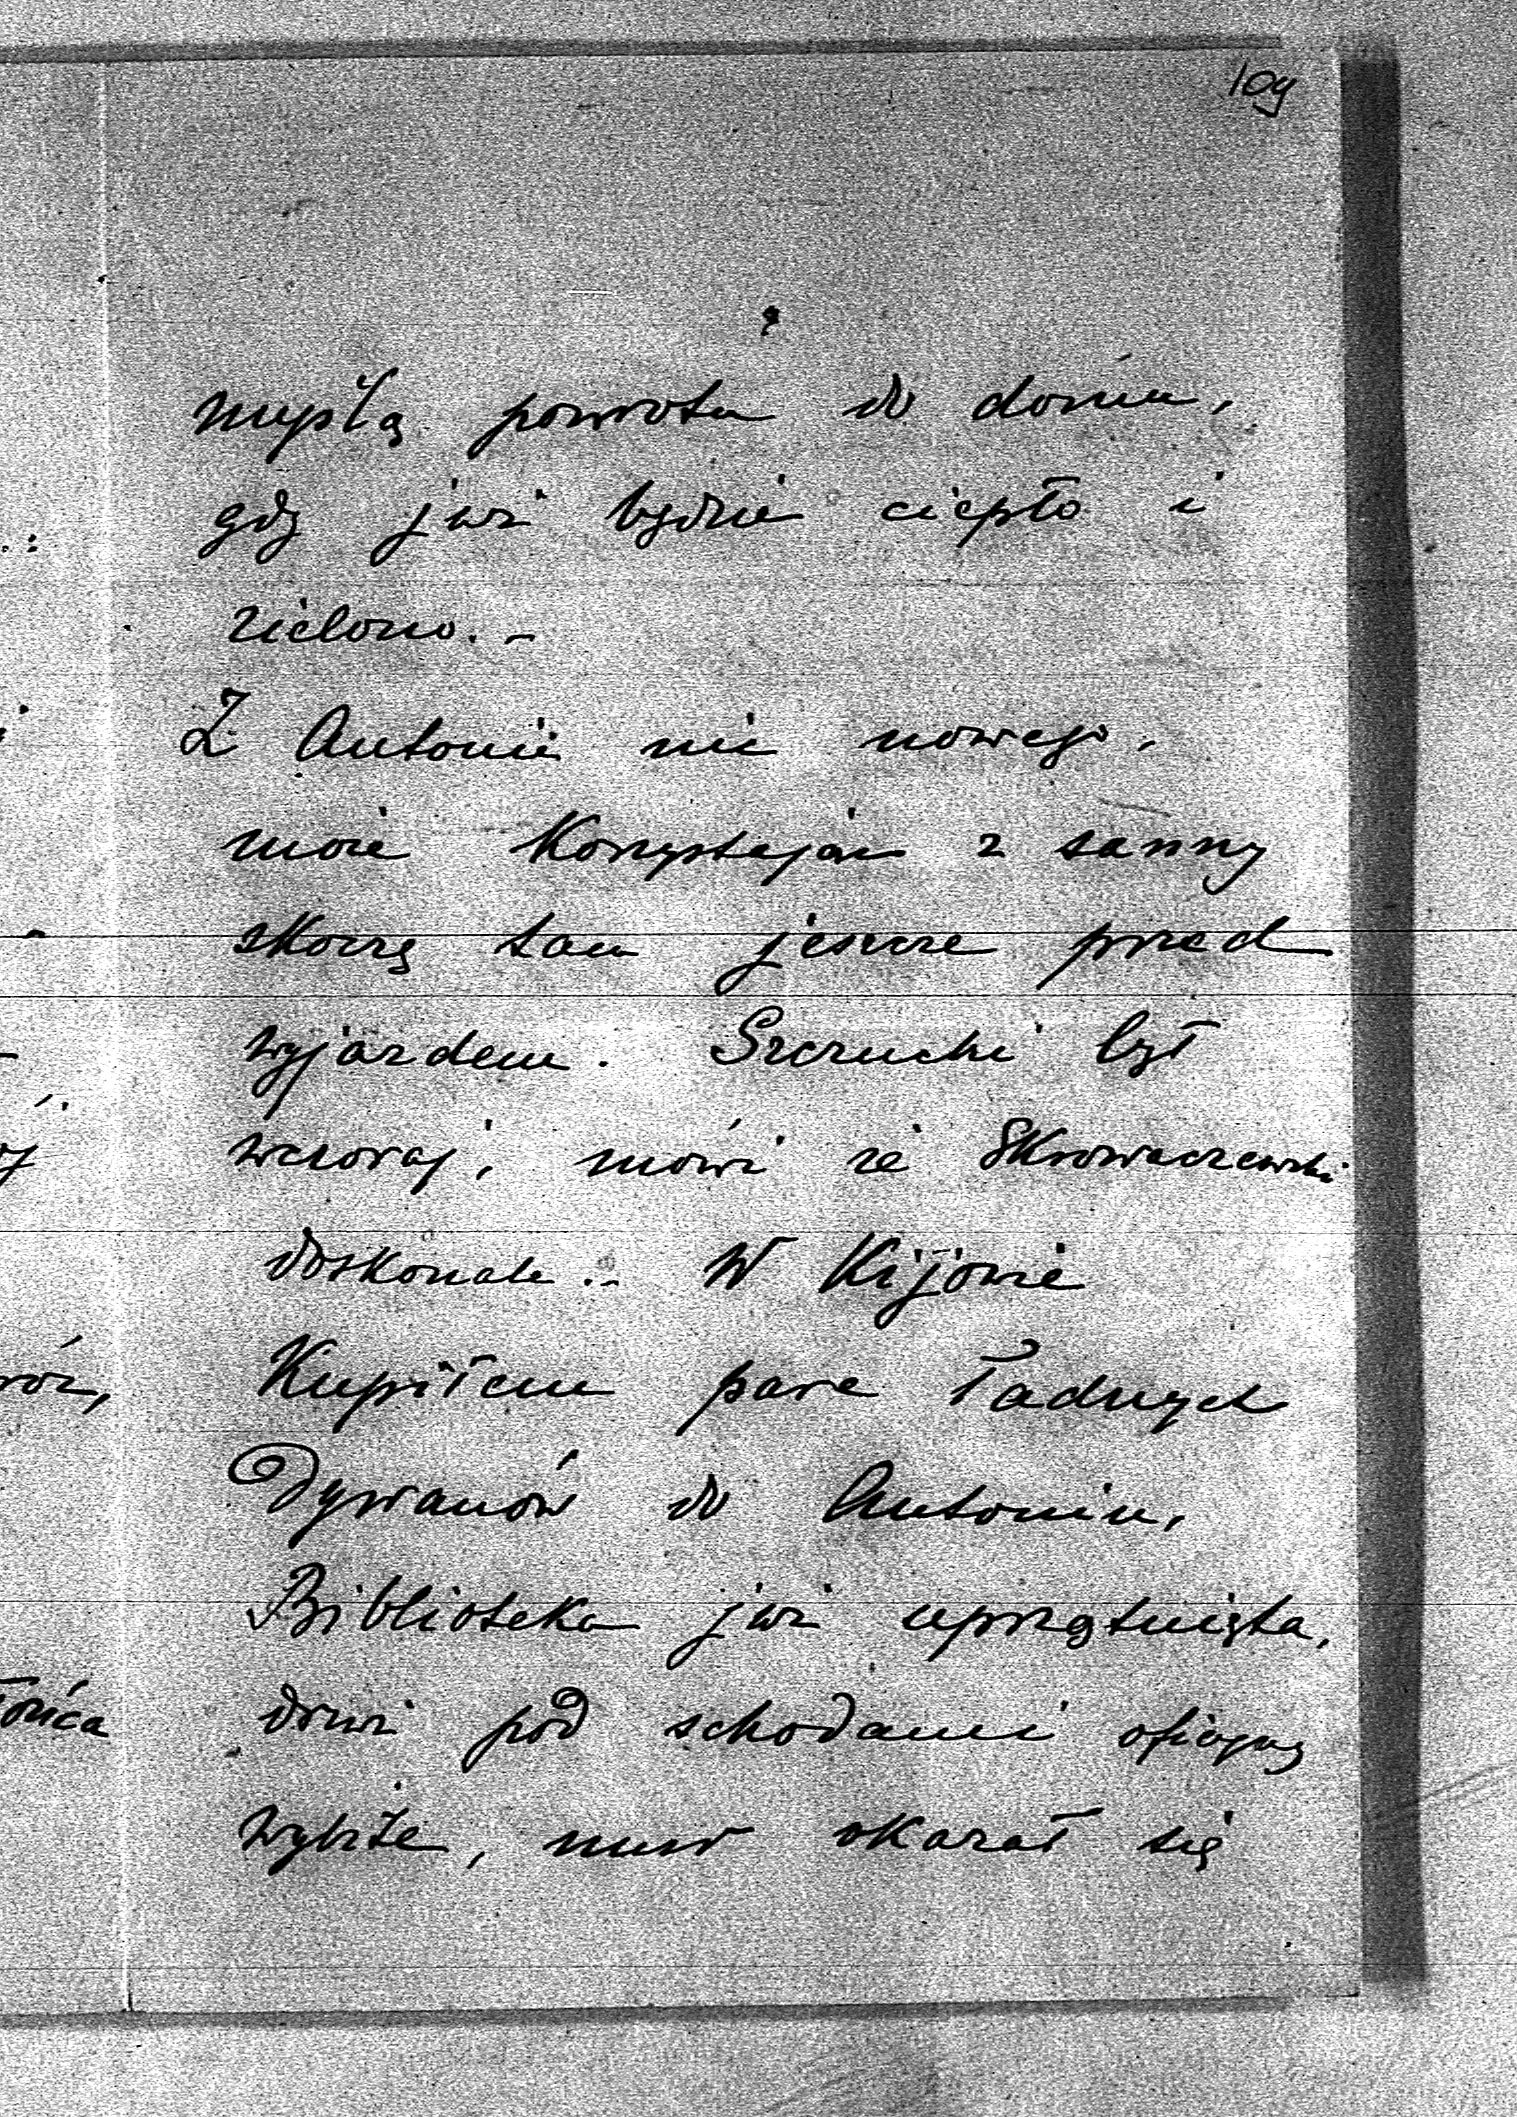 109
myślą powrotu do domu,
gdy już będzie ciepło i
zielono. –
Z Antonin nic nowego,
może korzystając z sanny
skoczę tam jeszcze przed
wyjazdem. Szczucki był
wczoraj, mówi że Skrowaczewski
doskonale. – W Kijowie
Kupiłem parę ładnych
Dywanów do Antonin,
Biblioteka już uprzątnięta,
drzwi pod schodami oficyny
wybite, mur okazał się